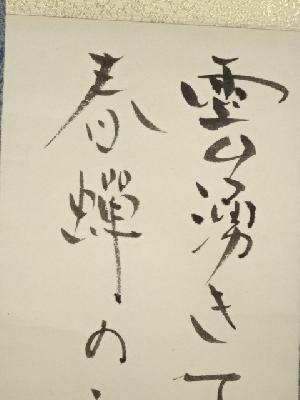 雲湧きて
春蝉の